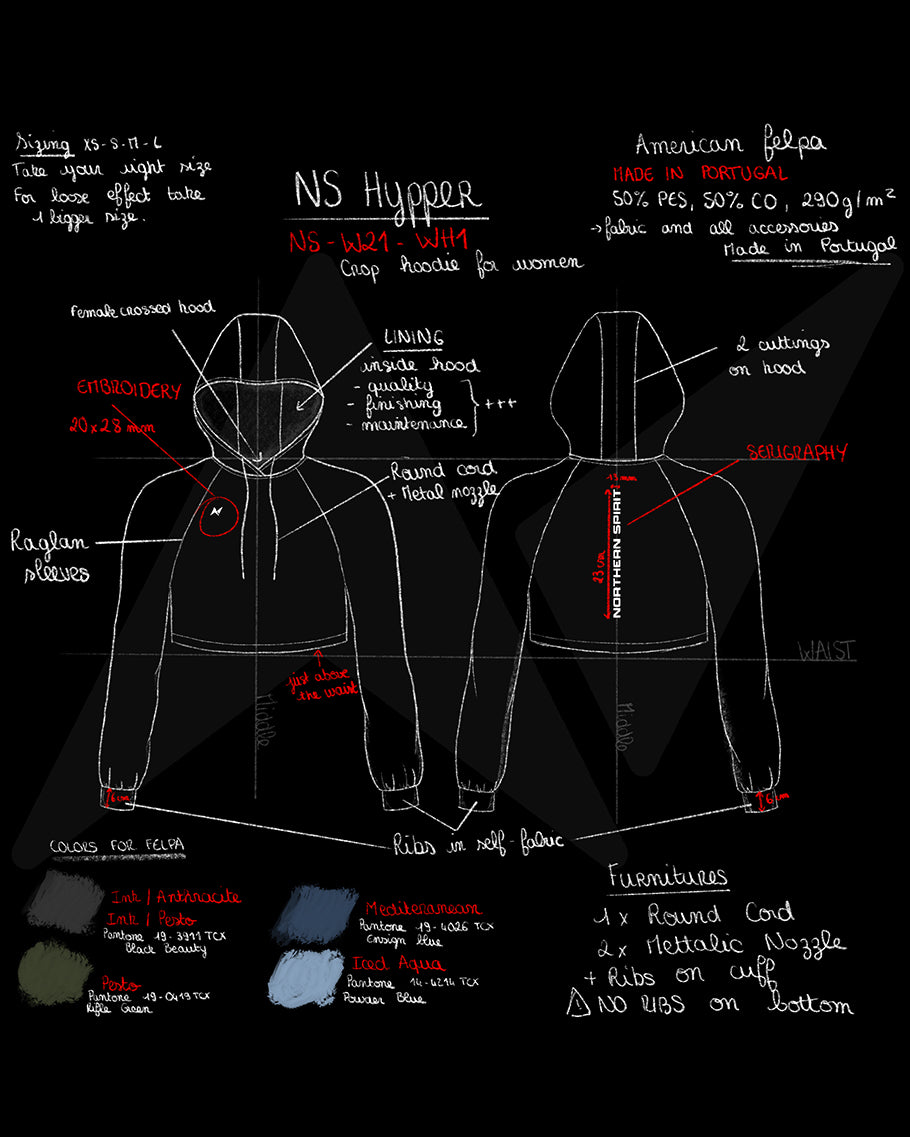 Sizing XS-S-M-L
Take your right size
For loose effect take
1 bigger size.
NS Hypper
NS-W21-WH1
Crop hoodie for women
American felpa
MADE IN PORTUGAL
50% PES, 50% CO, 290g/m²
→fabric and all accessories
Made in Portugal
Female crossed hood
EMBROIDERY
20x28mm
LINING
inside hood
- quality
- finishing
- maintenance
+++
Round cord
+ Metal nozzle
Raglan
sleeves
just above
the waist
Middle
6cm
2 cuttings
on hood
SERIGRAPHY
15mm
23cm
NORTHERN SPIRIT
WAIST
Middle
Ribs in self-fabric
COLORS FOR FELPA
Ink / Anthracite
Ink / Pesto
Pantone 19-3911 TCX
Black Beauty
Pesto
Pantone 19-0419 TCX
Rifle Green
Mediteranean
Pantone 19-4026 TCX
Ensign blue
Iced Aqua
Pantone 14-4214 TCX
Powder Blue
Furnitures
1x Round Cord
2x Mettalic Nozzle
+ Ribs on cuff
⚠ NO RIBS on bottom